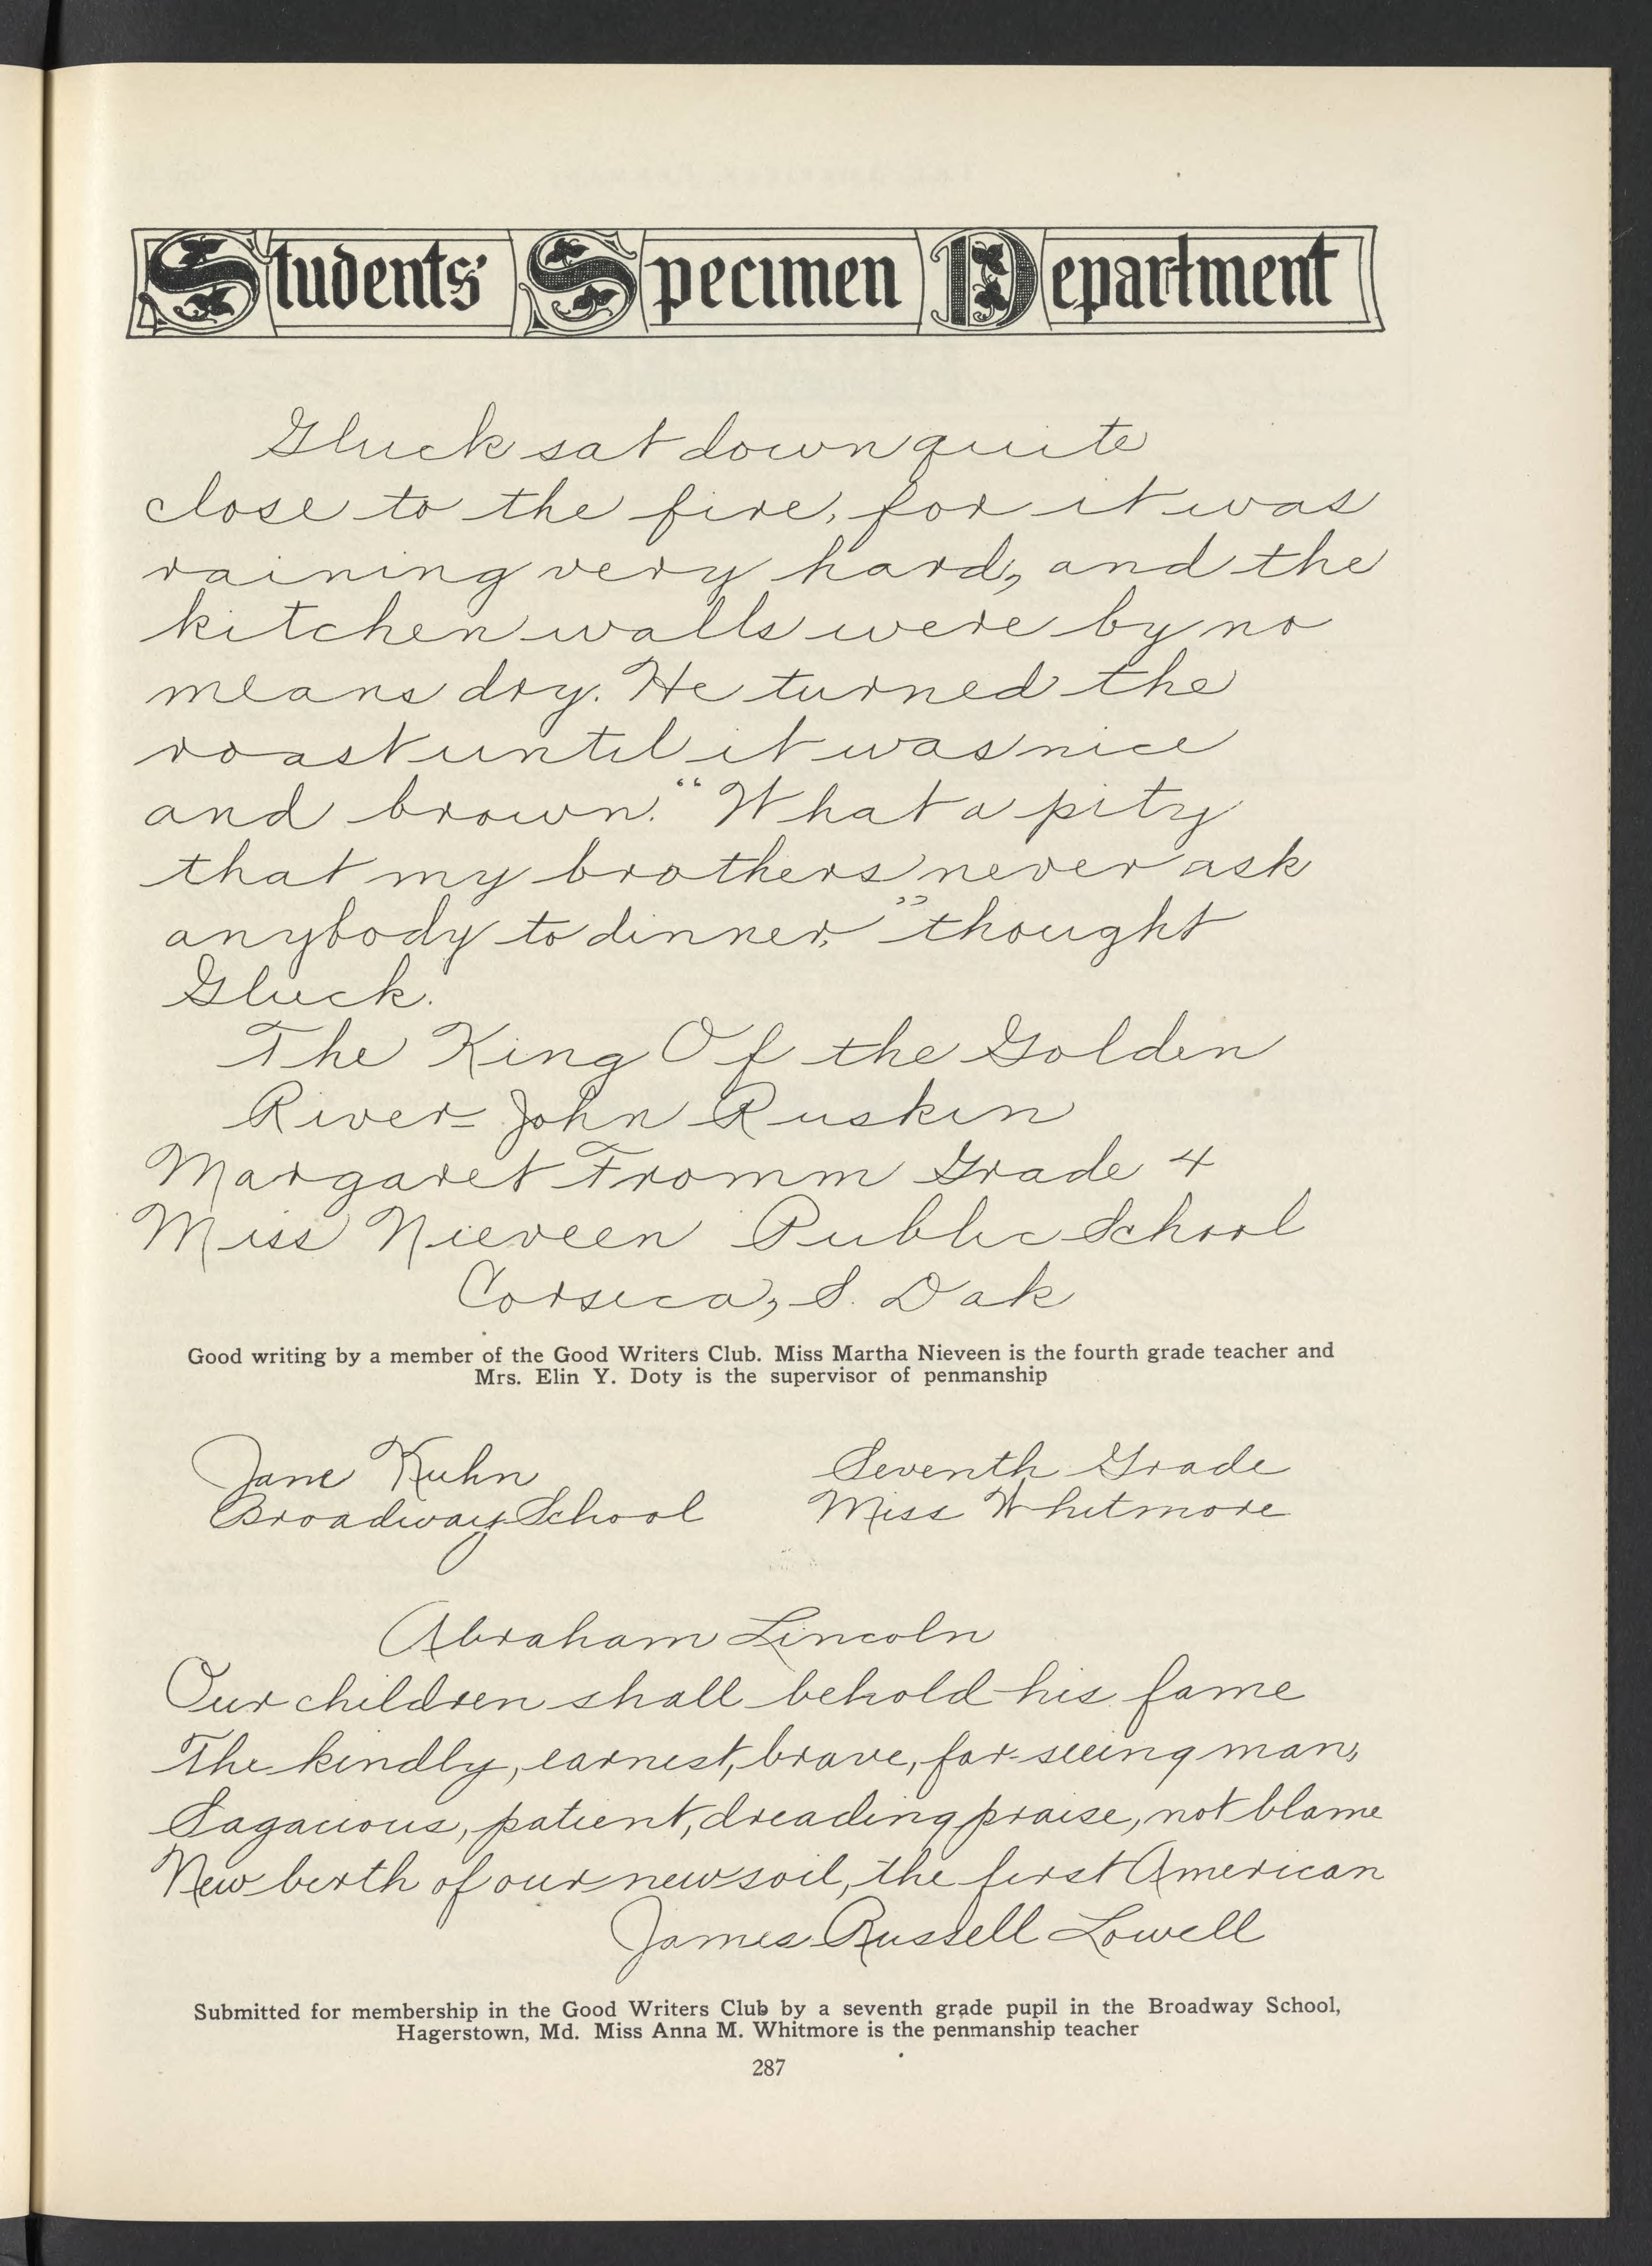 Students' Specimen Department
Gluck sat down quite
close to the fire, for it was
raining very hard, and the
kitchen walls were by no
means dry. He turned the
roast until it was nice
and brown. "What a pity
that my brothers never ask
anybody to dinner," thought
Gluck.
The King Of the Golden
River - John Ruskin
Margaret Fromm Grade 4
Miss Nieveen Public School
Corsica, S. Dak
Good writing by a member of the Good Writers Club. Miss Martha Nieveen is the fourth grade teacher and
Mrs. Elin Y. Doty is the supervisor of penmanship
Jane Kuhn Seventh Grade
Broadway School Miss Whitmore
Abraham Lincoln
Our children shall behold his fame
The kindly, earnest, brave, far-seeing man,
Sagacious, patient, dreading praise, not blame
New birth of our new soil, the first American
James Russell Lowell
Submitted for membership in the Good Writers Club by a seventh grade pupil in the Broadway School,
Hagerstown, Md. Miss Anna M. Whitmore is the penmanship teacher
287